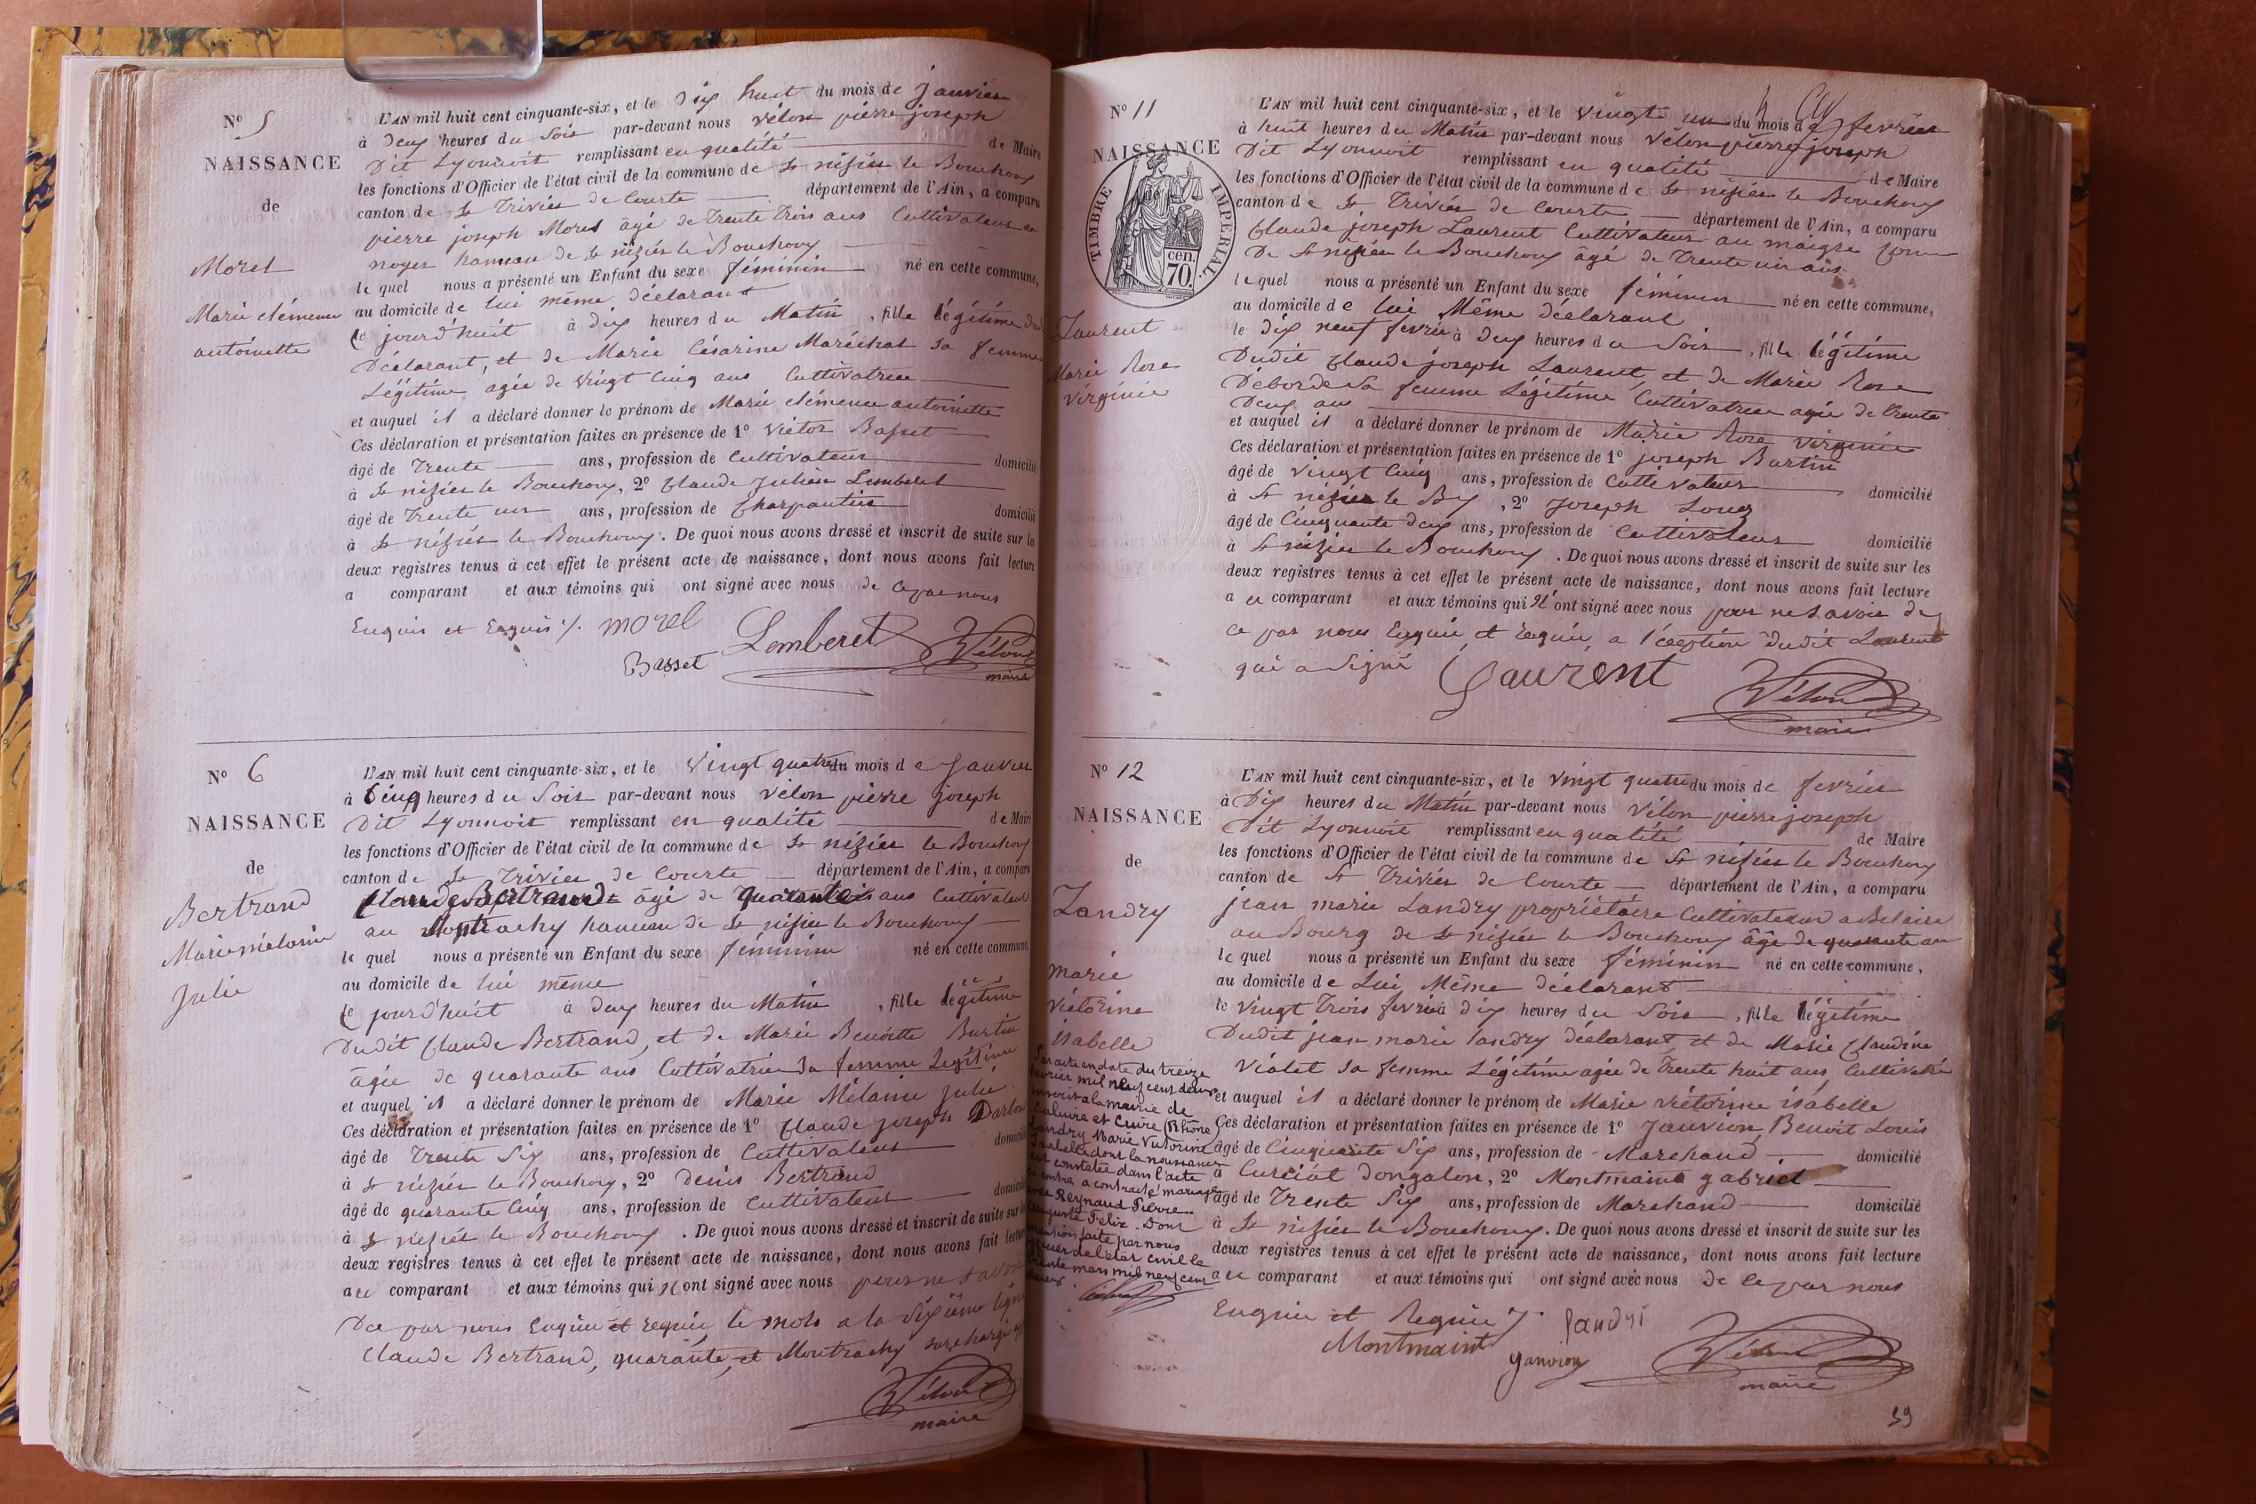 N° 5
NAISSANCE
de
Morel
Marie clémence
antoinette
L'AN mil huit cent cinquante-six, et le Dix huit du mois de janvier
à Deux heures du Soir par-devant nous vélon pierre joseph
Dit Lyonnois remplissant en qualité de Maire
les fonctions d'Officier de l'état civil de la commune de St nizier le Bouchoux
canton de St Trivier de Courte département de l'Ain, a comparu
pierre joseph Morel âgé de Trente Trois ans Cultivateur
noyer hameau de St nizier le Bouchoux
le quel nous a présenté un Enfant du sexe féminin né en cette commune,
au domicile de lui même déclarant
le jourd'huit à dix heures du Matin, fille légitime du
Déclarant, et de Marie Césarine Maréchal sa femme
Légitime agée de vingt Cinq ans Cultivatrice
et auquel il a déclaré donner le prénom de Marie clémence antoinette
Ces déclaration et présentation faites en présence de 1° victor Basset
âgé de Trente ans, profession de Cultivateur domicilié
à St nizier le Bouchoux, 2° Claude julien Lemberet
âgé de Trente un ans, profession de Charpentier domicilié
à St nizier le Bouchoux. De quoi nous avons dressé et inscrit de suite sur les
deux registres tenus à cet effet le présent acte de naissance, dont nous avons fait lecture
a comparant et aux témoins qui ont signé avec nous de ce par nous
Enquis et Requis ./. morel
Lemberet
Vélon
Basset
maire
N° 6
NAISSANCE
de
Bertrand
Marie mélanie
Julie
L'AN mil huit cent cinquante-six, et le vingt quatre du mois de Janvier
à Cinq heures du Soir par-devant nous vélon pierre joseph
Dit Lyonnois remplissant en qualité de Maire
les fonctions d'Officier de l'état civil de la commune de St nizier le Bouchoux
canton de St Trivier de Courte département de l'Ain, a comparu
Claude Bertrand âgé de quarante ans Cultivateur
au Montrachy hameau de St nizier le Bouchoux
le quel nous a présenté un Enfant du sexe féminin né en cette commune,
au domicile de lui même
le jourd'huit à deux heures du Matin, fille légitime
Dudit Claude Bertrand, et de Marie Benoitte Burtin
âgée de quarante ans Cultivatrice sa femme Légitime
et auquel il a déclaré donner le prénom de Marie Mélanie Julie
Ces déclaration et présentation faites en présence de 1° Claude joseph
âgé de Trente Six ans, profession de Cultivateur domicilié
à St nizier le Bouchoux, 2° Denis Bertrand
âgé de quarante Cinq ans, profession de Cultivateur domicilié
à St nizier le Bouchoux. De quoi nous avons dressé et inscrit de suite sur les
deux registres tenus à cet effet le présent acte de naissance, dont nous avons fait lecture
au comparant et aux témoins qui n'ont signé avec nous pour ne savoir
De ce par nous Enquis et requis, le mots a la Sixième ligne
Claude Bertrand, quarante, et Montrachy surchargé
Vélon
maire
N° 11
NAISSANCE
TIMBRE IMPERIAL.
cen.
70.
Laurent
Marie Rose
virginie
L'AN mil huit cent cinquante-six, et le vingt un du mois de fevrier
à huit heures du Matin par-devant nous Vélon pierre joseph
Dit Lyonnoit remplissant en qualité de Maire
les fonctions d'Officier de l'état civil de la commune de St nizier le Bouchoux
canton de St Trivier de Courte département de l'Ain, a comparu
Claude joseph Laurent Cultivateur au maigre
De St nizier le Bouchoux âgé de Trente un ans
le quel nous a présenté un Enfant du sexe féminin né en cette commune,
au domicile de lui Même déclarant
le dix neuf fevrier à deux heures du Soir, fille légitime
Dudit Claude joseph Laurent, et de Marie Rose
Déborde sa femme Légitime Cultivatrice agée de trente
Deux ans
et auquel il a déclaré donner le prénom de Marie Rose virginie
Ces déclaration et présentation faites en présence de 1° joseph Burtin
âgé de vingt Cinq ans, profession de Cultivateur domicilié
à St nizier le Bx, 2° joseph Long
âgé de Cinquante deux ans, profession de Cultivateur domicilié
à St nizier le Bouchoux. De quoi nous avons dressé et inscrit de suite sur les
deux registres tenus à cet effet le présent acte de naissance, dont nous avons fait lecture
a ce comparant et aux témoins qui n'ont signé avec nous pour ne savoir de
ce par nous Enquis et requis, a l'éception dudit Laurent
qui a Signé Laurent
Vélon
maire
N° 12
NAISSANCE
de
Landry
marie
victorine
isabelle
Par acte en date du treize
février mil neuf cent deux
inscrit à la mairie de
Caluire et Cuire (Rhône)
Landry Marie Victorine
Isabelle dont la naissance
est constatée dans l'acte
ci contre a contracté mariage
avec Reynaud Pierre
Auguste Felix. Pour
mention faite par nous
officier de l'état civil le
trente mars mil neuf cent
deux.
L'AN mil huit cent cinquante-six, et le vingt quatre du mois de fevrier
à Dix heures du Matin par-devant nous Vélon pierre joseph
Dit Lyonnois remplissant en qualité de Maire
les fonctions d'Officier de l'état civil de la commune de St nizier le Bouchoux
canton de St Trivier de Courte département de l'Ain, a comparu
jean marie Landry propriétaire Cultivateur
au Bourg de St nizier le Bouchoux âgé de quarante ans
le quel nous a présenté un Enfant du sexe féminin né en cette commune,
au domicile de Lui Même déclarant
le vingt Trois fevrier à dix heures du Soir, fille légitime
Dudit jean marie landry déclarant, et de Marie Claudine
Violet sa femme Légitime agée de Trente huit ans, Cultivatrice
et auquel il a déclaré donner le prénom de Marie victorine isabelle
Ces déclaration et présentation faites en présence de 1° Janvion, Benoit Louis
âgé de Cinquante Six ans, profession de Marchand domicilié
à Curciat dongalon, 2° Montmaint gabriel
âgé de Trente Six ans, profession de Marchand domicilié
à St nizier le Bouchoux. De quoi nous avons dressé et inscrit de suite sur les
deux registres tenus à cet effet le présent acte de naissance, dont nous avons fait lecture
au comparant et aux témoins qui ont signé avec nous de ce par nous
Enquis et Requis ./. Landri
Montmaint
Janvion
Vélon
maire
39